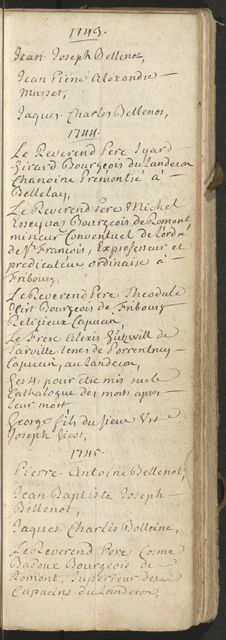 1743.
Jean Joseph Bellenot,
Jean Piere Alexandre
Musset,
Jaques Charles Bellenot,
1744.
Le Reverend Pere Isard
Girard Bourgeois du Landeron
Chanoine Premontré à
Bellelay,
Le Reverend Pere Michel
Bourgeois de Romont
mineur Conventuel de l'ordre
de St François, Exprofesseur et
predicateur ordinaise à
Fribourg
Le Reverend Pere Theodule
Bourgeois de Fribourg
Religieux Capucin,
Le Frere Alexis
de Porrentruy
Capucin, au Landeron,
Ces 4 pour être mis sur le
Cathalogue des morts apres
leur mort
George fils du sieur Urs
Joseph Vicot,
1745
Pierre Antoine Bellenot,
Jean Baptiste Joseph
Bellenot,
Jaques Charles Bolleine,
Le Reverend Pere Cosme
Badoux Bourgeois de
Romont, Superieur des
Capucins du Landeron,